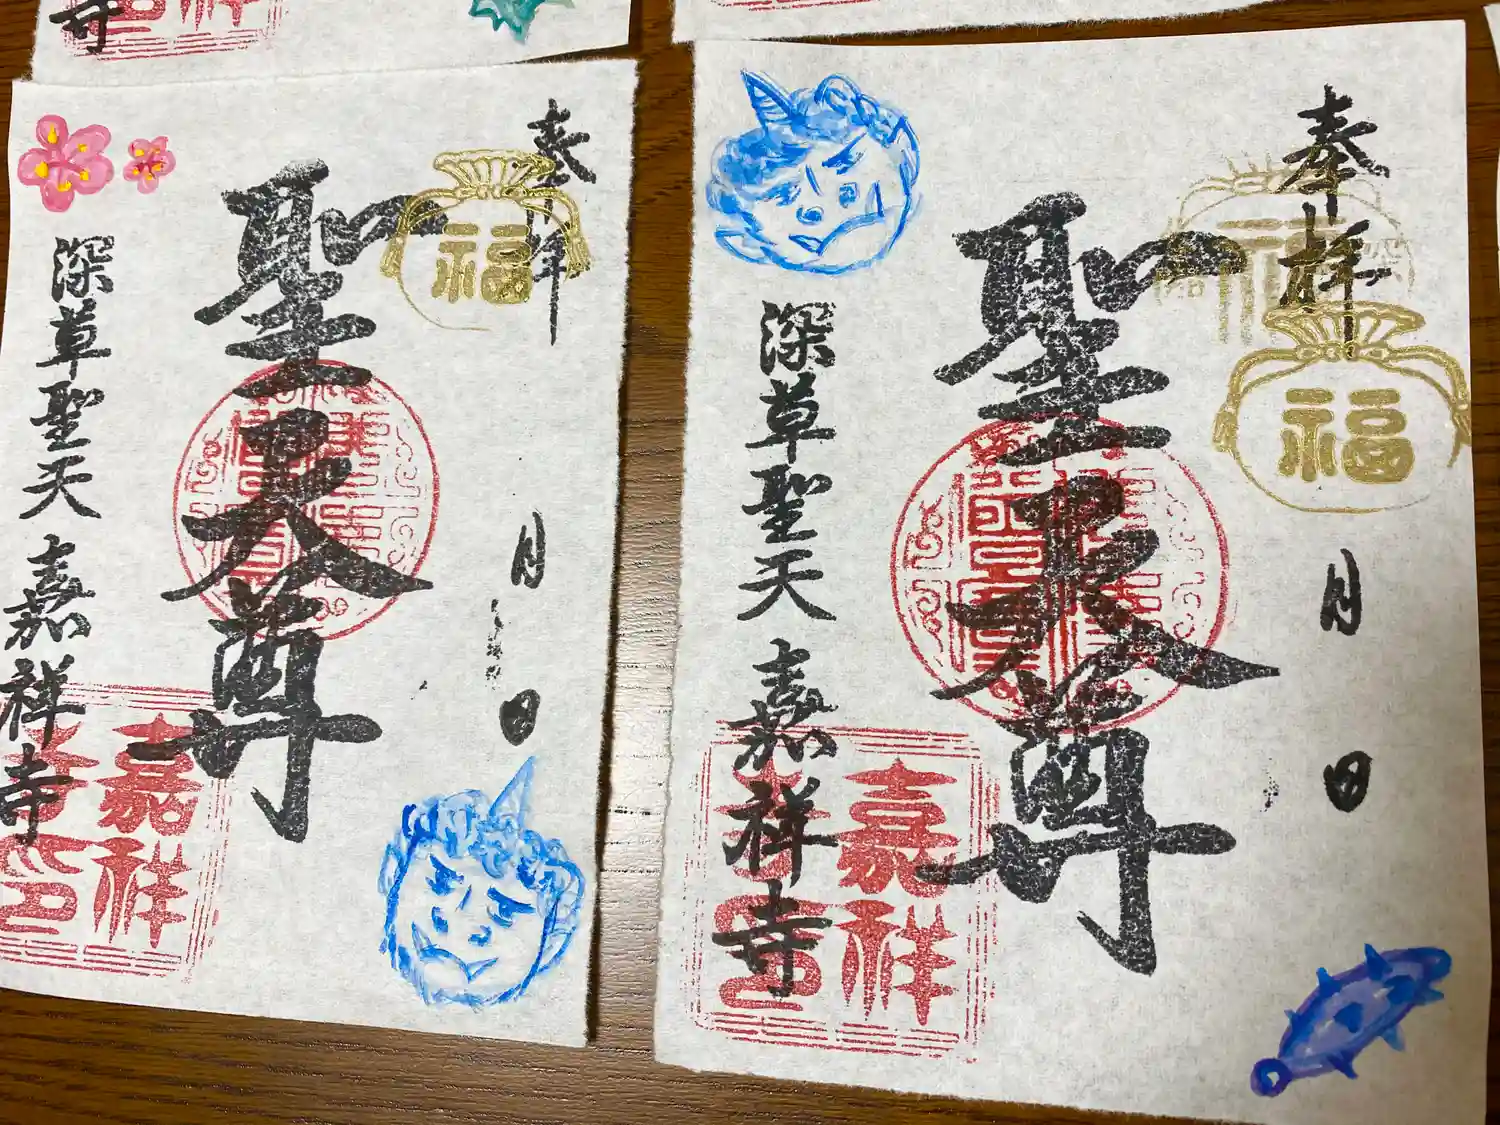 寺
奉拝
福
月
日
聖天尊
深草聖天 嘉祥寺
嘉祥
寺印
奉拝
福
福
月
日
聖天尊
深草聖天 嘉祥寺
嘉祥
寺印